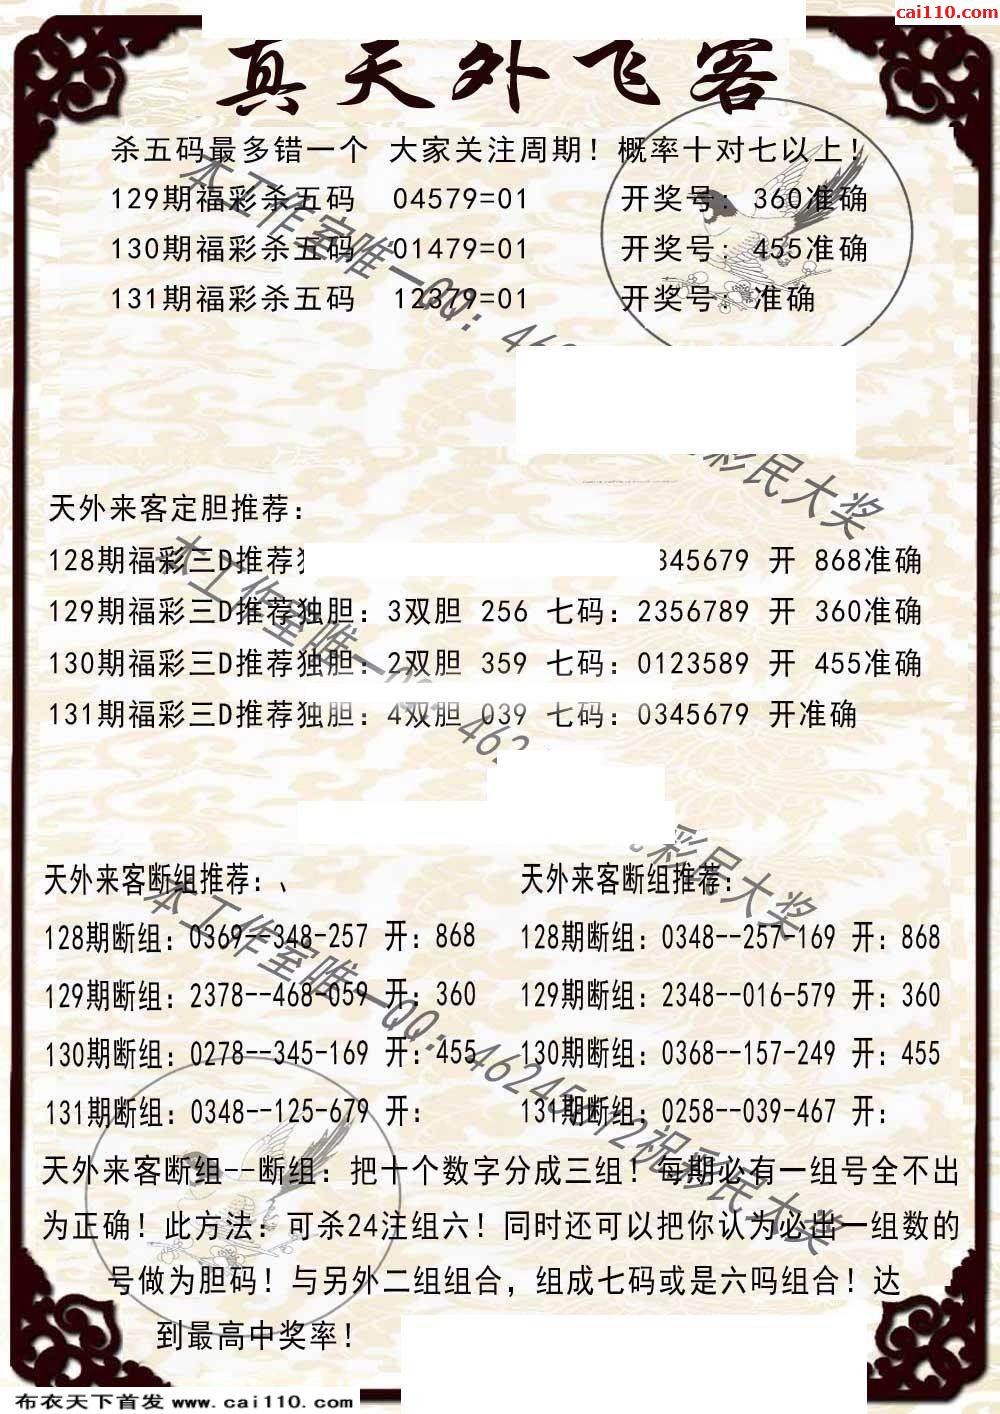 cai110.com
真天外飞客
杀五码最多错一个 大家关注周期！概率十对七以上！
129期福彩杀五码 04579=01 开奖号: 360准确
130期福彩杀五码 01479=01 开奖号: 455准确
131期福彩杀五码 12379=01 开奖号: 准确
天外来客定胆推荐：
128期福彩三D推荐 345679 开 868准确
129期福彩三D推荐独胆：3双胆 256 七码：2356789 开 360准确
130期福彩三D推荐独胆：2双胆 359 七码：0123589 开 455准确
131期福彩三D推荐独胆：4双胆 039 七码：0345679 开准确
天外来客断组推荐：、
128期断组：0369--348-257 开：868
129期断组：2378--468-059 开：360
130期断组：0278--345-169 开：455
131期断组：0348--125-679 开：
天外来客断组推荐：
128期断组：0348--257-169 开：868
129期断组：2348--016-579 开：360
130期断组：0368--157-249 开：455
131期断组：0258--039-467 开：
天外来客断组--断组：把十个数字分成三组！每期必有一组号全不出
为正确！此方法：可杀24注组六！同时还可以把你认为必出一组数的
号做为胆码！与另外二组组合，组成七码或是六吗组合！达
到最高中奖率！
本工作室唯一QQ：46
彩民大奖
本工作室唯一QQ：462
彩民大奖
本工作室唯一QQ：46245612祝彩民大奖
布衣天下首发 www.cai110.com